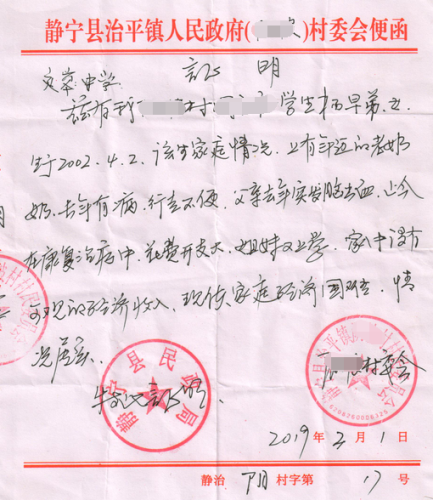 静宁县治平镇人民政府( )村委会便函
证 明
文萃中学
兹有我 村 学生 早弟,女
生于2002.4.2. 该生家庭情况,上有年迈的老奶
奶,去年有病,行走不便,父亲去年突发脑出血,今
在康复治病中,花费开支大,姐妹又上学,家中没有
可观的经济收入,现使家庭经济困难,情
况属实
特此证明
静宁县民政局
静宁县治平镇
村委会
2019年3月1日
静治 阴 村字第 17 号